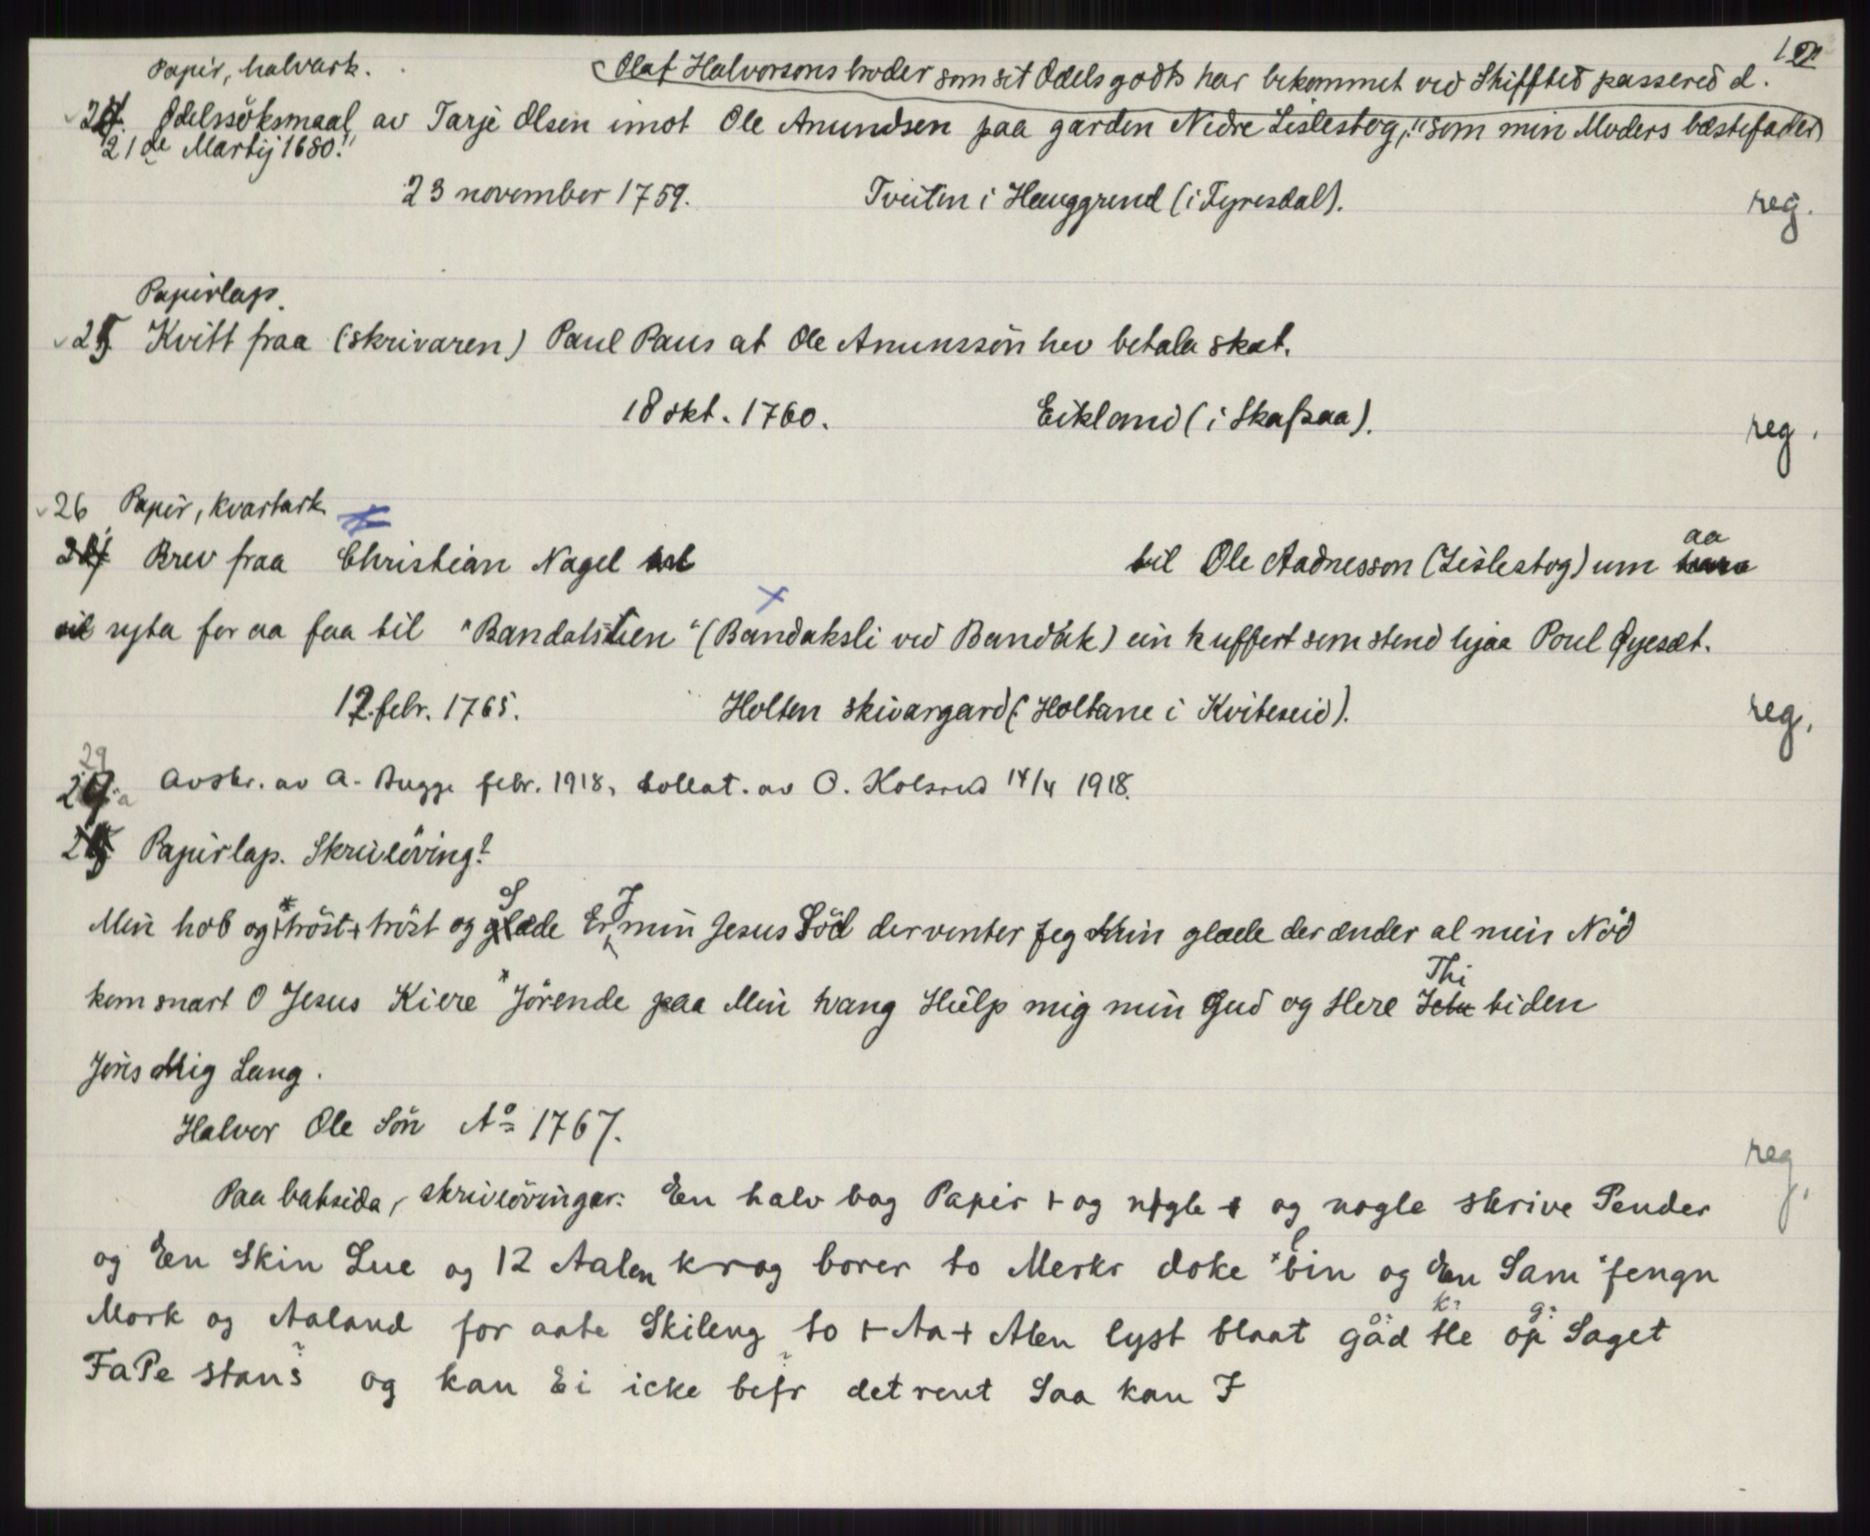 Papir, halvark.
Olaf Halvorsons hvoder som sit Odelsgodts har bekommet ved Skiffted passered d.
24. Odelssöksmaal av Tarje Olsen imot Ole Anundsen paa garden Nedre Lislestog, "som min Moders bæstefader
21de Martij 1680."
23 november 1759. Tveiten i Hauggrend (i Fyresdal). reg.
Papirlap.
25 Kvitt fraa (skrivaren) Paul Paus at Ole Anunssön hev betala skat.
18 okt. 1760. Eikland (i Skafsaa). reg.
26 Papir, kvartark
Brev fraa Christian Nagel til Ole Aadnesson (Lislestog) um aa
syta for aa faa til "Bandakslien" (Bandaksli ved Bandak) ein kuffert som stend hjaa Poul Øyesæt.
12. febr. 1765. Holten skivargard (: Holtane i Kviteseid). reg.
29
Avskr. av A. Bugge febr. 1918, kollat. av O. Kolsrud 14/4 1918.
Papirlap. Skrivöving?
Min hob og *+tröst+ tröst og Glæde Er J min Jesus Död der venter Jeg Min glæde der ænder al mein Nöd
kom snart O Jesus Kiere *Jörende paa Min hvang Hielp mig min Gud og Here Thi tiden
Jöris Mig Lang.
Halvor Ole Sön Ao 1767.
reg.
Paa baksida, skrivövingar: En halv bog Papir + og nogle + og nogle skrive Pender
og En Skin Lue og 12 Aalen krog borer to Merkr doke *bin og En Sam *fengn
Mork og Aaland for aate Skileng to + Aa + Alen lyst blaat gåd Hle op Saget
FaPe stans og kan Ei icke befr det rent Saa kan J